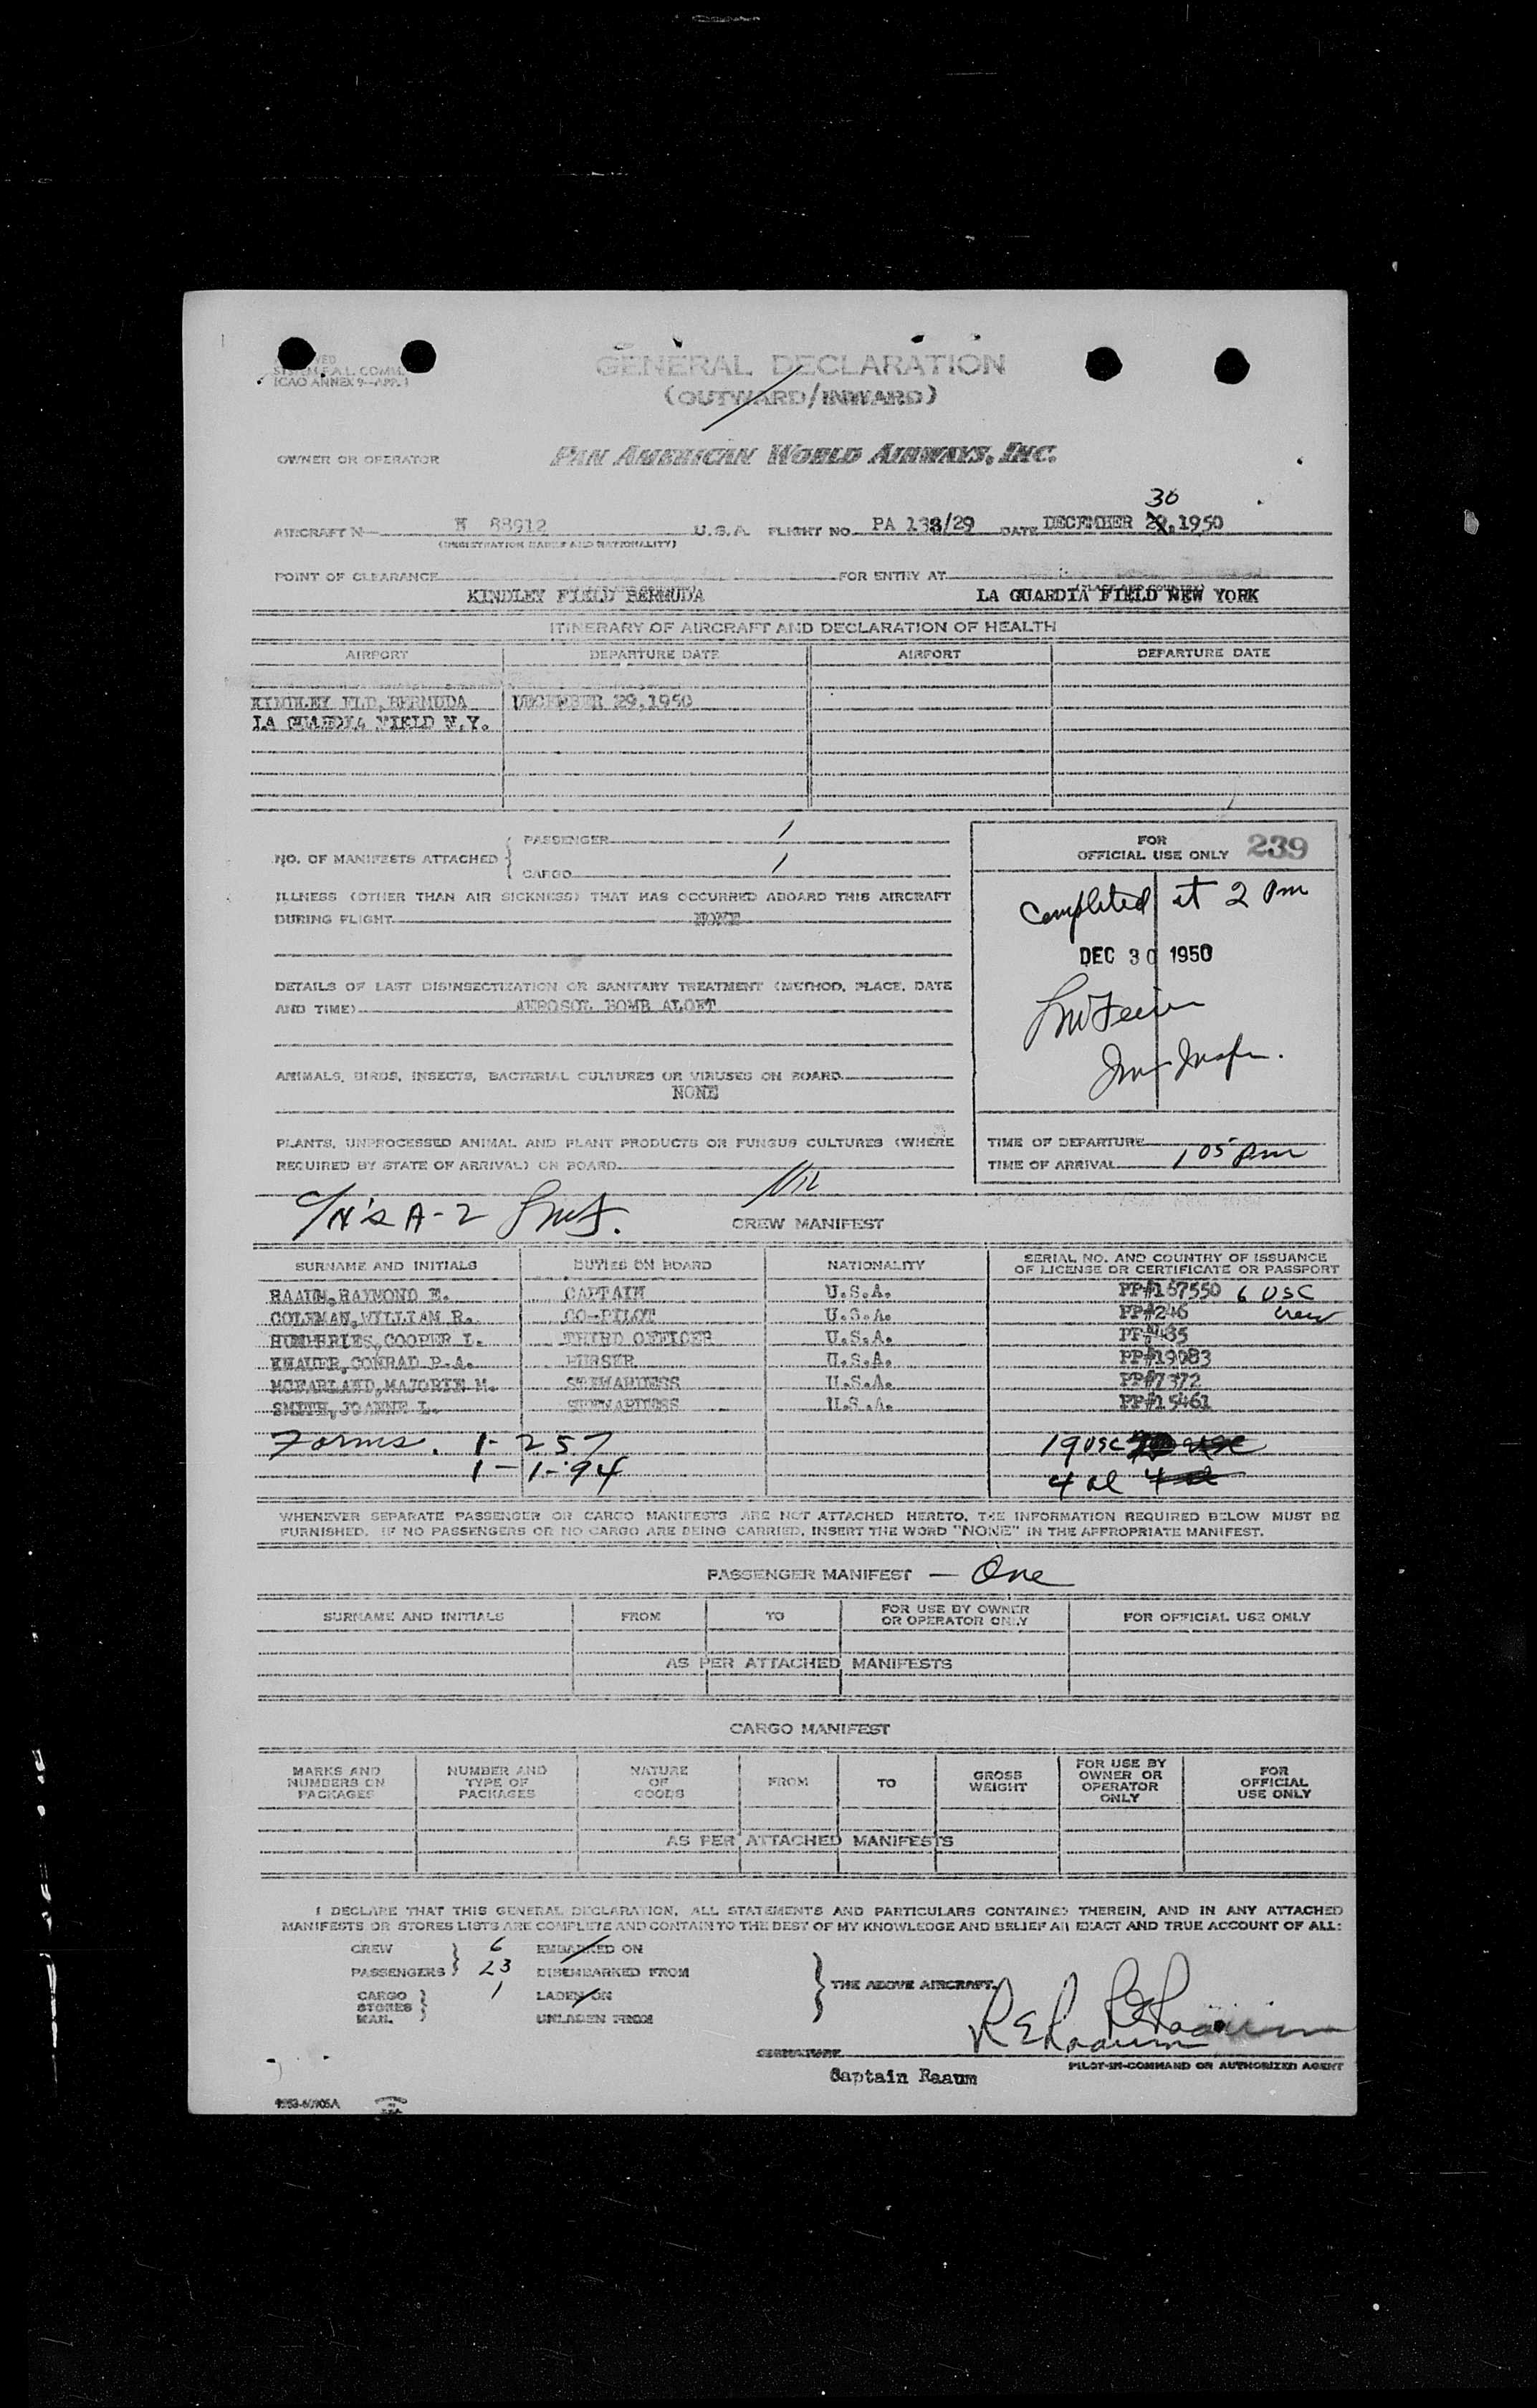 SYSTEM F.A.L. COMM.
ICAO ANNEX 9—APP. 1
GENERAL DECLARATION
(OUTWARD/INWARD)
OWNER OR OPERATOR PAN AMERICAN WORLD AIRWAYS, INC.
30
AIRCRAFT N N 88912 U.S.A. FLIGHT NO. PA 138/29 DATE DECEMBER 29, 1950
(REGISTRATION MARKS AND NATIONALITY)
POINT OF CLEARANCE FOR ENTRY AT
KINDLEY FIELD BERMUDA LA GUARDIA FIELD NEW YORK
(PLACE AND COUNTRY)
ITINERARY OF AIRCRAFT AND DECLARATION OF HEALTH
AIRPORT DEPARTURE DATE AIRPORT DEPARTURE DATE
KINDLEY FLD, BERMUDA DECEMBER 29,1950
LA GUARDIA FIELD N.Y.
NO. OF MANIFESTS ATTACHED
PASSENGER 1
CARGO 1
ILLNESS (OTHER THAN AIR SICKNESS) THAT HAS OCCURRED ABOARD THIS AIRCRAFT
DURING FLIGHT NONE
DETAILS OF LAST DISINSECTIZATION OR SANITARY TREATMENT (METHOD, PLACE, DATE
AND TIME) AEROSOL BOMB ALOFT
ANIMALS, BIRDS, INSECTS, BACTERIAL CULTURES OR VIRUSES ON BOARD
NONE
PLANTS, UNPROCESSED ANIMAL AND PLANT PRODUCTS OR FUNGUS CULTURES (WHERE
REQUIRED BY STATE OF ARRIVAL) ON BOARD
Nil
FOR
OFFICIAL USE ONLY 239
Completed at 2 Pm
DEC 30 1950
Imm Inspr.
TIME OF DEPARTURE
TIME OF ARRIVAL 1 05 pm
C/N's A-2
CREW MANIFEST
SURNAME AND INITIALS DUTIES ON BOARD NATIONALITY SERIAL NO. AND COUNTRY OF ISSUANCE
OF LICENSE OR CERTIFICATE OR PASSPORT
RAAUM, RAYMOND E. CAPTAIN U.S.A. PP#167550 6 USC
COLEMAN, WILLIAM R. CO-PILOT U.S.A. PP#246 crew
HUMPHRIES, COOPER L. THIRD OFFICER U.S.A. PP#485
KNAUER, CONRAD P.A. PURSER U.S.A. PP#19083
MCFARLAND, MAJORIE M. STEWARDESS U.S.A. PP#7372
SMITH, JOANNE L. STEWARDESS U.S.A. PP#15461
Forms. 1-257 19 USC
1-1-94 4 al 4 al
WHENEVER SEPARATE PASSENGER OR CARGO MANIFESTS ARE NOT ATTACHED HERETO, THE INFORMATION REQUIRED BELOW MUST BE
FURNISHED. IF NO PASSENGERS OR NO CARGO ARE BEING CARRIED, INSERT THE WORD "NONE" IN THE APPROPRIATE MANIFEST.
PASSENGER MANIFEST — One
SURNAME AND INITIALS FROM TO FOR USE BY OWNER
OR OPERATOR ONLY FOR OFFICIAL USE ONLY
AS PER ATTACHED MANIFESTS
CARGO MANIFEST
MARKS AND
NUMBERS ON
PACKAGES NUMBER AND
TYPE OF
PACKAGES NATURE
OF
GOODS FROM TO GROSS
WEIGHT FOR USE BY
OWNER OR
OPERATOR
ONLY FOR
OFFICIAL
USE ONLY
AS PER ATTACHED MANIFESTS
I DECLARE THAT THIS GENERAL DECLARATION, ALL STATEMENTS AND PARTICULARS CONTAINED THEREIN, AND IN ANY ATTACHED
MANIFESTS OR STORES LISTS ARE COMPLETE AND CONTAIN TO THE BEST OF MY KNOWLEDGE AND BELIEF AN EXACT AND TRUE ACCOUNT OF ALL:
CREW 6 EMBARKED ON
PASSENGERS 23 DISEMBARKED FROM
CARGO 1 LADEN ON
STORES
MAIL UNLADEN FROM
THE ABOVE AIRCRAFT.
R E Raaum
R E Raaum
SIGNATURE
PILOT-IN-COMMAND OR AUTHORIZED AGENT
Captain Raaum